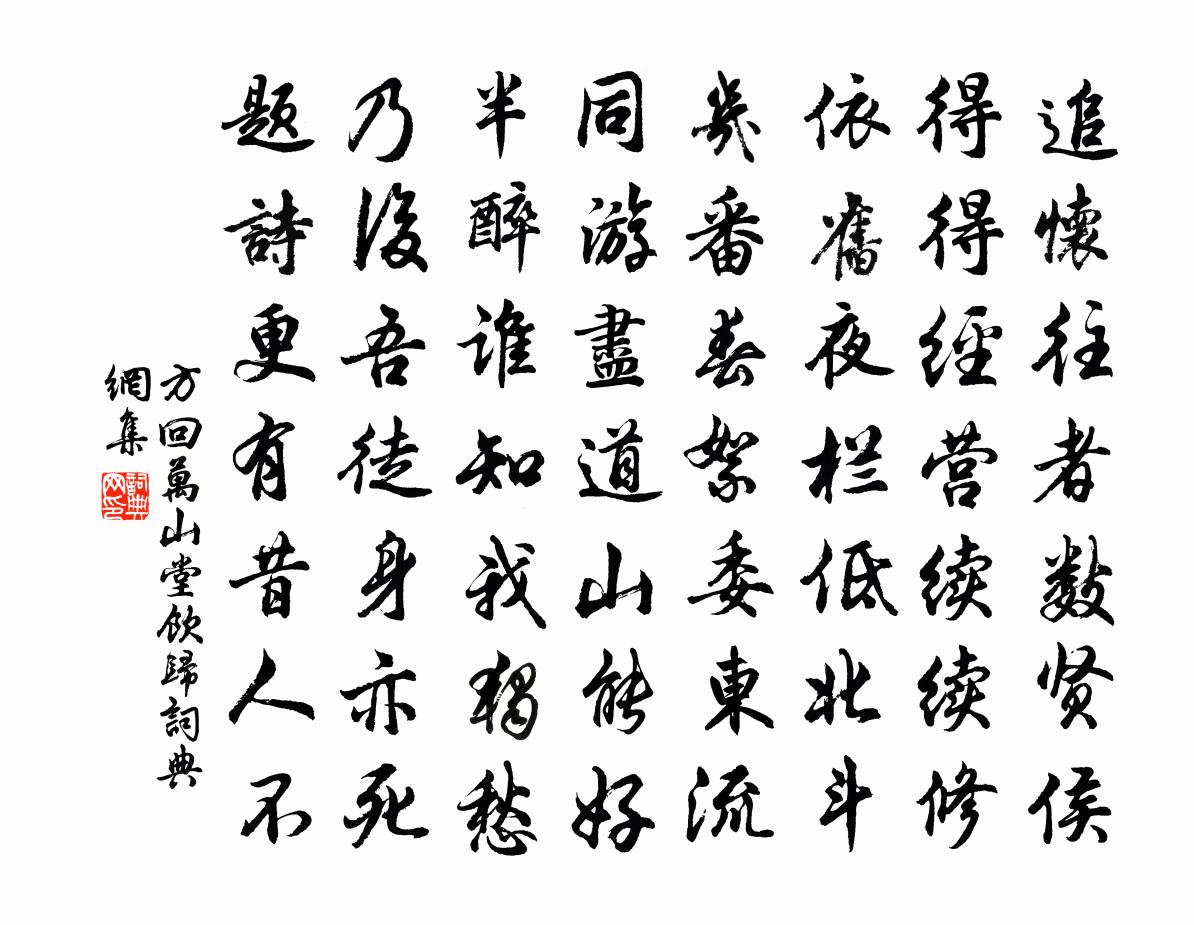 追懷往者数贤侯
得得經营续续修
依舊夜栏低北斗
幾番春絮委東流
同游盡道山能好
半醉谁知我独愁
乃後吾徒身亦死
题詩更有昔人不
方回萬山堂飲歸詞典
網集
詞典
网印